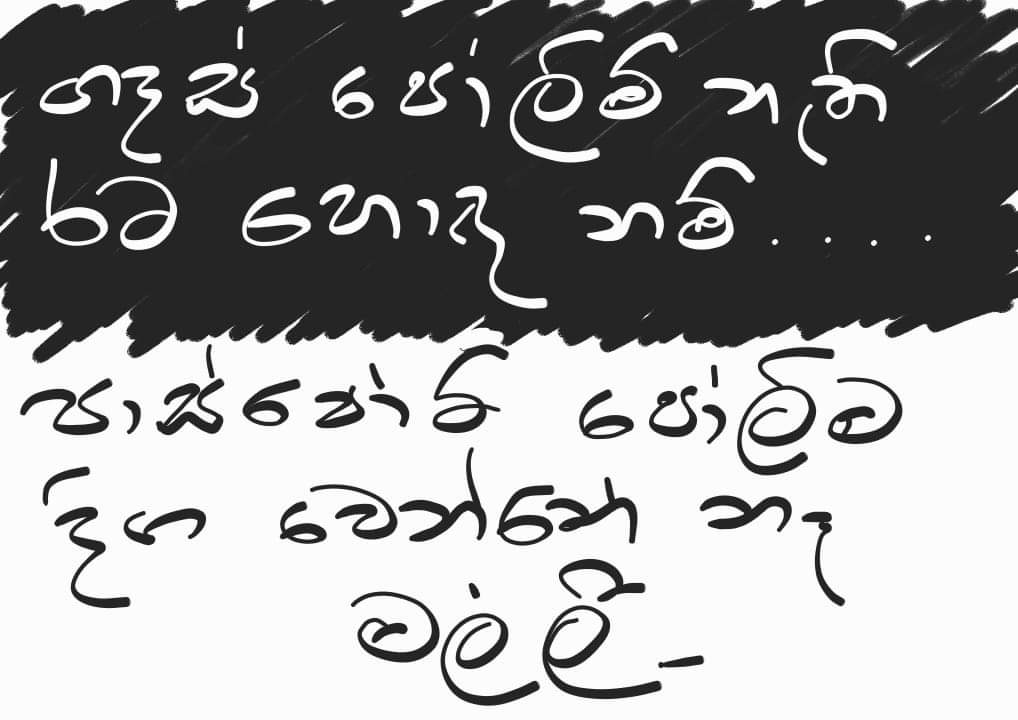 ගෑස් පෝලිම් නැති
රට හොඳ නම්....
පාස්පෝට් පෝලිම
දිග වෙන්නේ නෑ
මල්ලී_